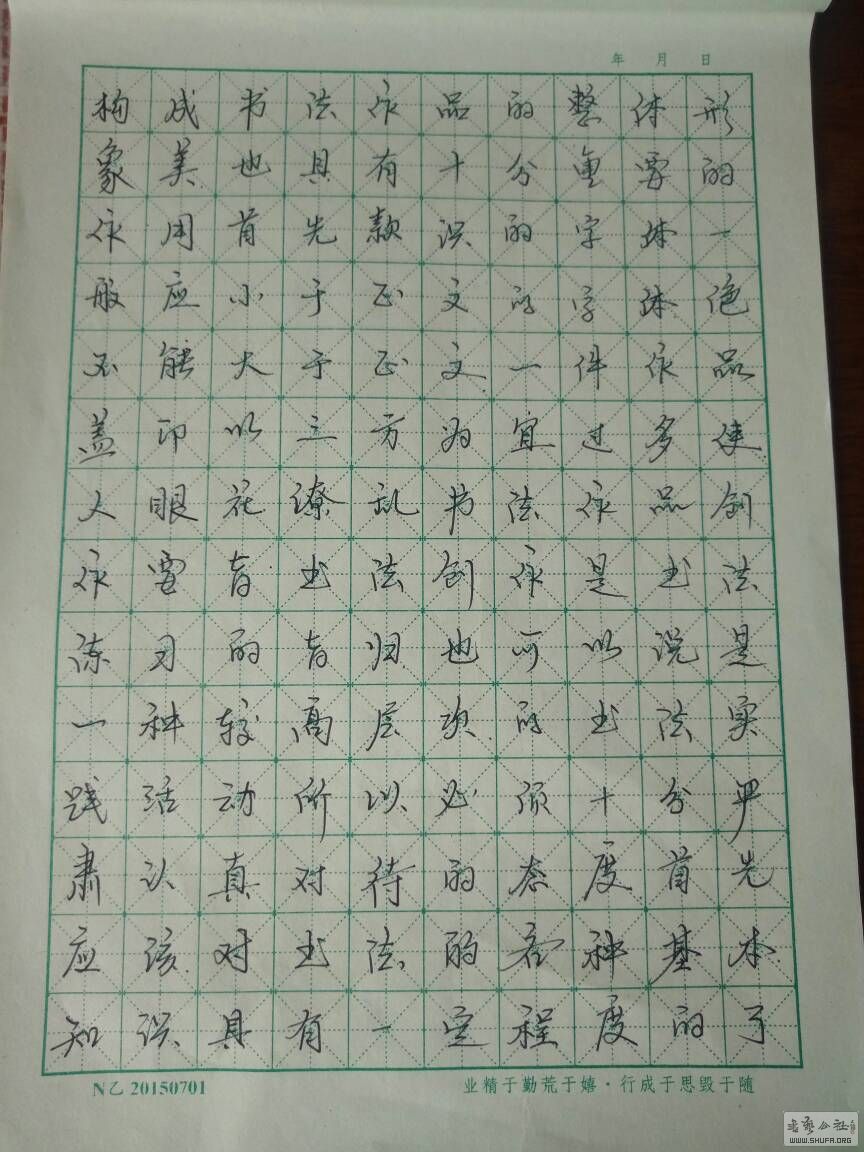 年 月 日
构成书法作品的整体形
象美也具有十分重要的
作用首先款识的字体一
般应小于正文的字体绝
不能大于正文一件作品
盖印以三方为宜过多使
人眼花缭乱书法作品创
作要有书法创作是书法
练习的有归也可以说是
一种较高层项的书法实
践活动所以必须十分严
肃认真对待的态度首先
应该对书法的各种基本
知识具有一定程度的了
N乙 20150701
业精于勤荒于嬉·行成于思毁于随
书艺公社
WWW.SHUFA.ORG